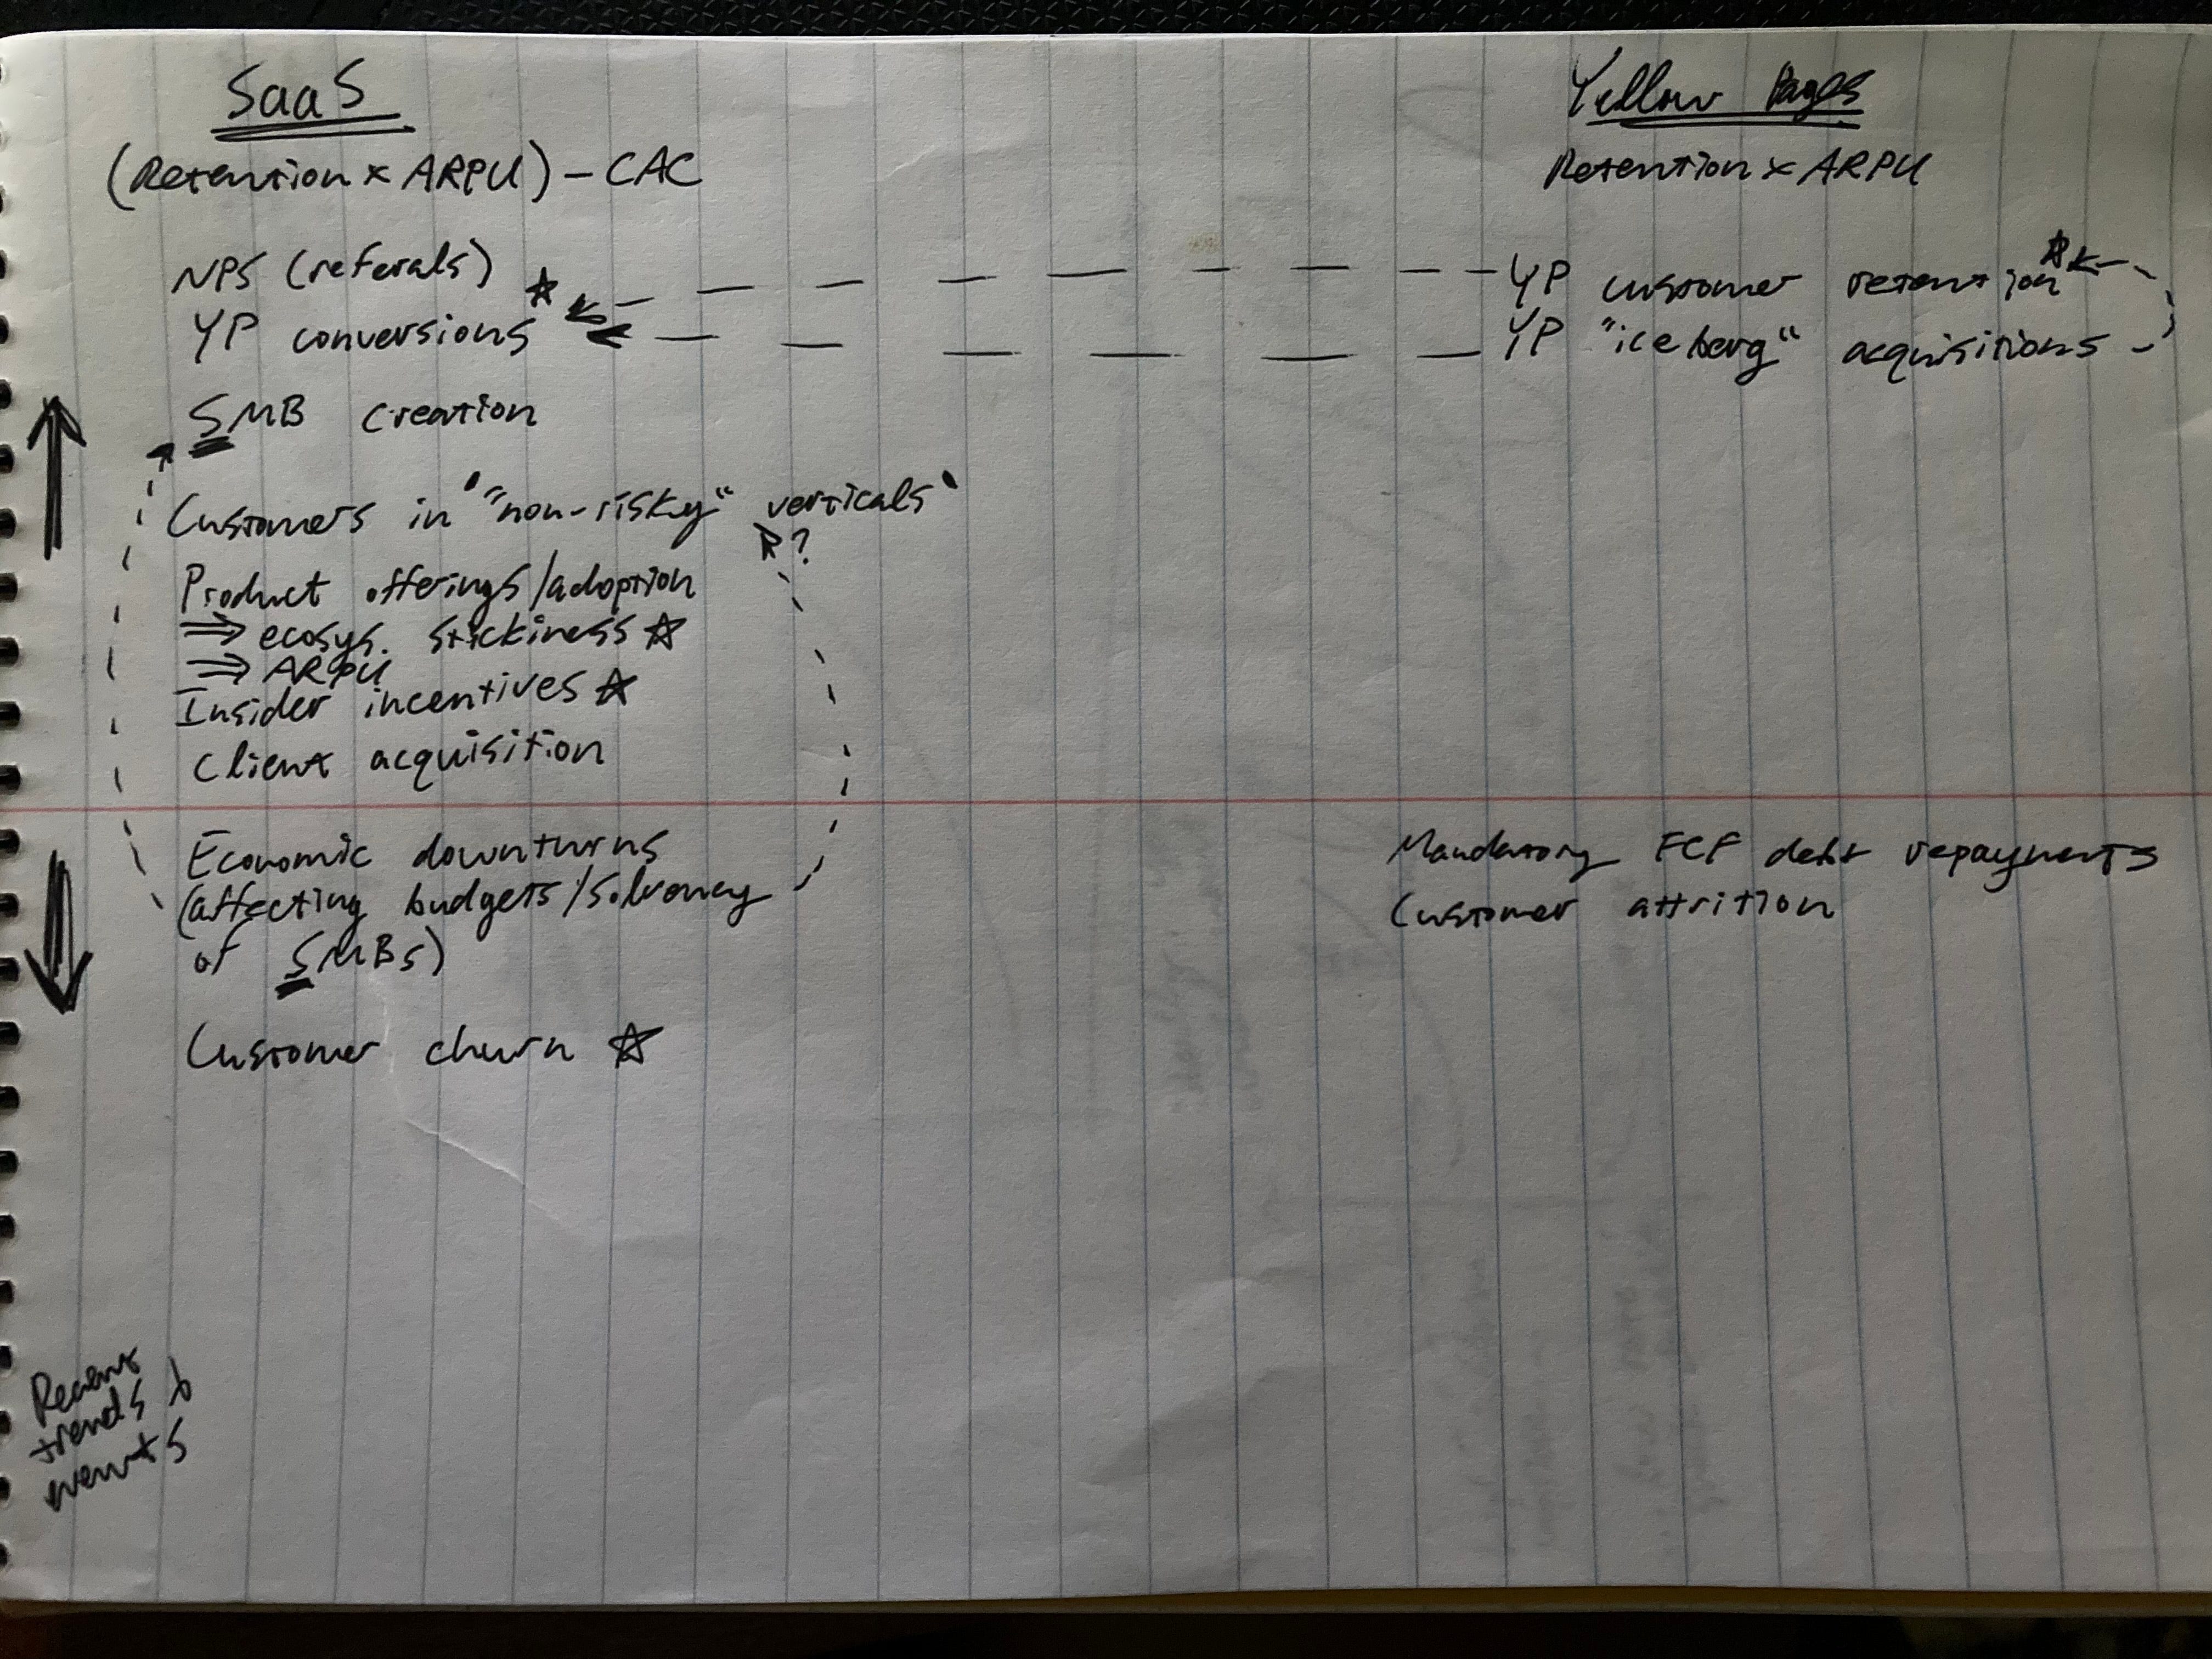 SaaS
(Retention x ARPU) – CAC
NPS (referals)
YP conversions
SMB creation
Customers in '"non-risky" verticals'
?
Product offerings/adoption
⇒ ecosys. stickiness ☆
⇒ ARPU
Insider incentives ☆
Client acquisition
Economic downturns
(affecting budgets/solvency
of SMBs)
Customer churn ☆
Yellow Pages
Retention x ARPU
YP customer retention ☆
YP "iceberg" acquisitions
Mandatory FCF debt repayments
Customer attrition
Recent
trends &
events